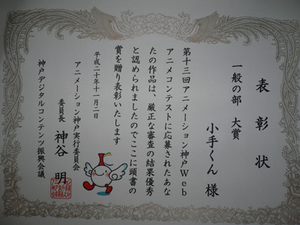 表彰状
一般の部 大賞
小手くん 様
第十三回アニメーション神戸Web
アニメコンテストに応募されたあな
たの作品は、厳正な審査の結果優秀
と認められましたのでここに頭書の
賞を贈り表彰いたします
平成二十年十一月二日
アニメーション神戸実行委員会
委員長 神谷 明
神戸デジタルコンテンツ振興会議